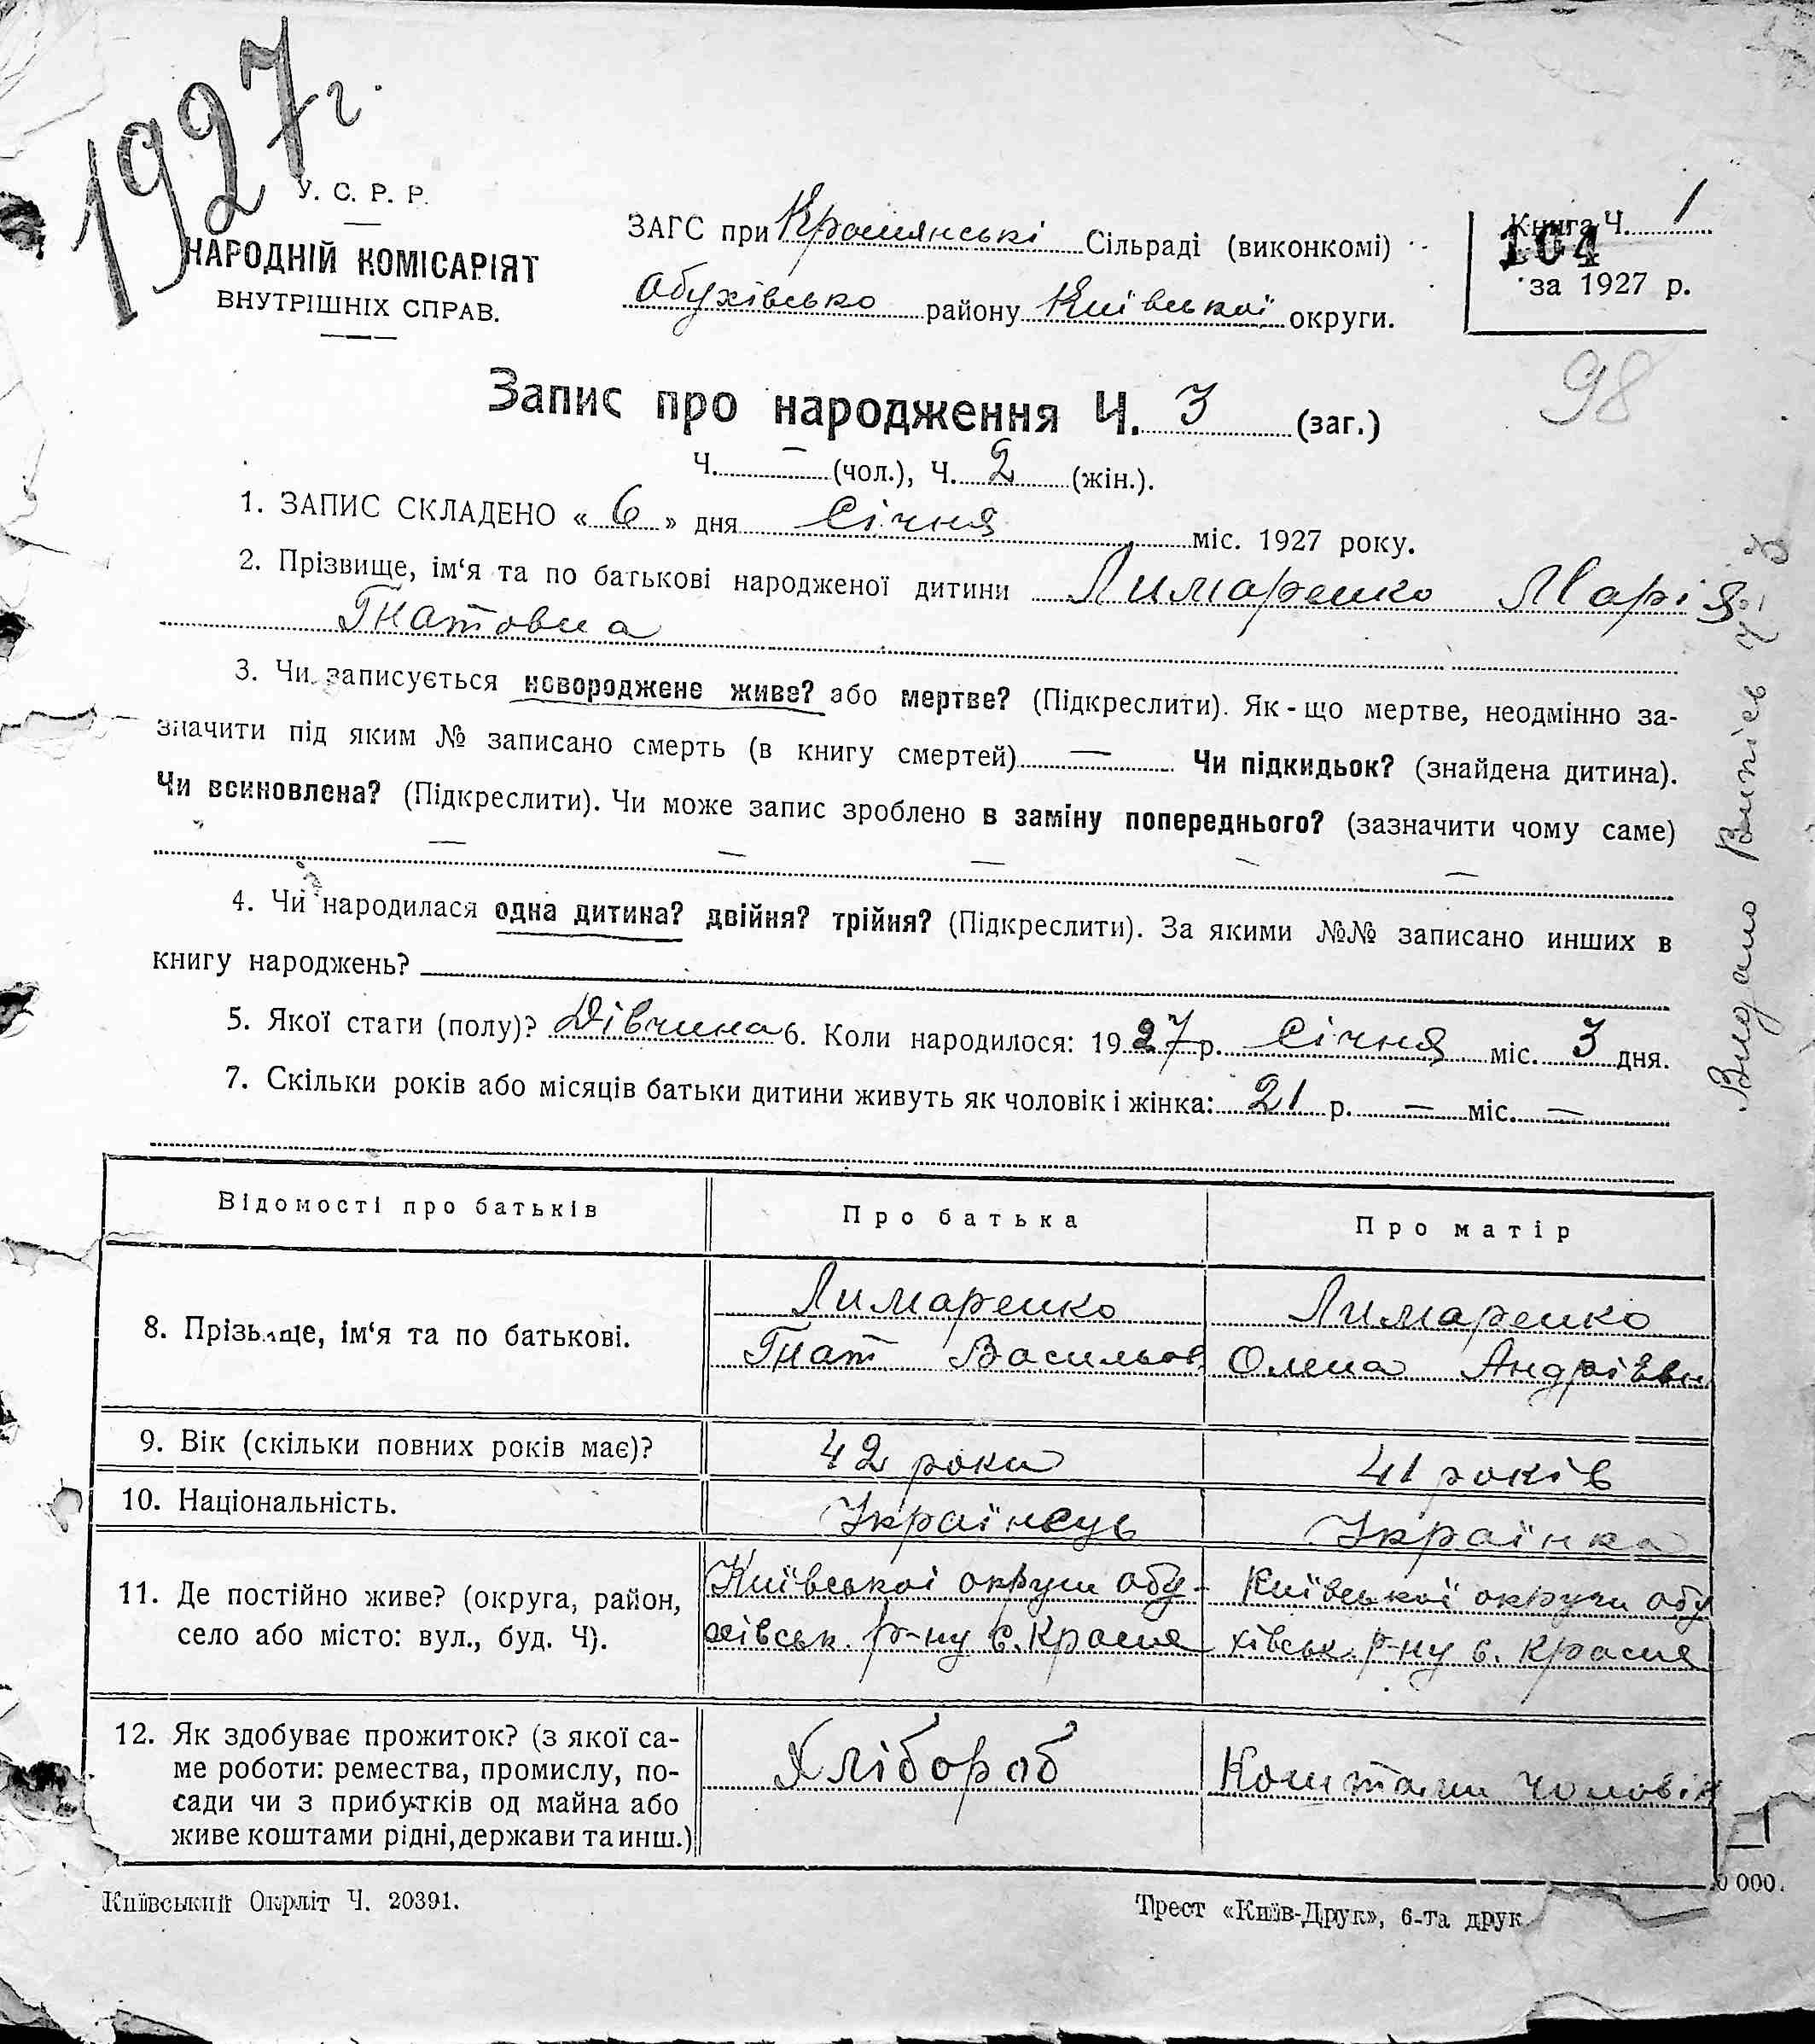 1927 г.
У. С. Р. Р.
НАРОДНІЙ КОМІСАРІЯТ
ВНУТРІШНІХ СПРАВ.
ЗАГС при Краснянські Сільраді (виконкомі)
Обухівсько району Київської округи.
Книга Ч. 1
104
за 1927 р.
98
Запис про народження Ч. 3 (заг.)
Ч. — (чол.), Ч. 2 (жін.).
1. ЗАПИС СКЛАДЕНО « 6 » дня Січня міс. 1927 року.
2. Прізвище, ім‘я та по батькові народженої дитини Лимаренко Марія
Гнатовна
3. Чи записується новороджене живе? або мертве? (Підкреслити). Як-що мертве, неодмінно за-
значити під яким № записано смерть (в книгу смертей) — Чи підкидьок? (знайдена дитина).
Чи всиновлена? (Підкреслити). Чи може запис зроблено в заміну попереднього? (зазначити чому саме)
— — — — —
4. Чи народилася одна дитина? двійня? трійня? (Підкреслити). За якими №№ записано инших в
книгу народжень?
5. Якої стати (полу)? Дівчина 6. Коли народилося: 1927 р. Січня міс. 3 дня.
7. Скільки років або місяців батьки дитини живуть як чоловік і жінка: 21 р. — міс. —
Видано Випіс Ч. 3
Відомості про батьків Про батька Про матір
8. Прізвище, ім‘я та по батькові.
Лимаренко Лимаренко
Гнат Васильов Олена Андрієвн
9. Вік (скільки повних років має)? 42 роки 41 років
10. Національність. Українець Українка
11. Де постійно живе? (округа, район,
село або місто: вул., буд. Ч).
Київської округи обу- Київської округи обу
хівськ. р-ну с. Красня хівськ. р-ну с. Красня
12. Як здобуває прожиток? (з якої са-
ме роботи: ремества, промислу, по-
сади чи з прибутків од майна або
живе коштами рідні, держави та инш.)
Хлібороб Коштами чоловік
Київський Окрліт Ч. 20391.
Трест «Київ-Друк», 6-та друк
0 000.